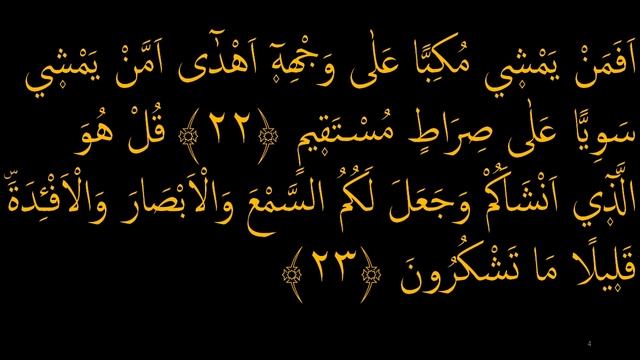 اَفَمَنْ يَمْشٖي مُكِبًّا عَلٰى وَجْهِهٖٓ اَهْدٰٓى اَمَّنْ يَمْشٖي
سَوِيًّا عَلٰى صِرَاطٍ مُسْتَقٖيمٍ ﴿٢٢﴾ قُلْ هُوَ
الَّذٖٓي اَنْشَاَكُمْ وَجَعَلَ لَكُمُ السَّمْعَ وَالْاَبْصَارَ وَالْاَفْـِٔدَةَۜ
قَلٖيلًا مَا تَشْكُرُونَ ﴿٢٣﴾
4